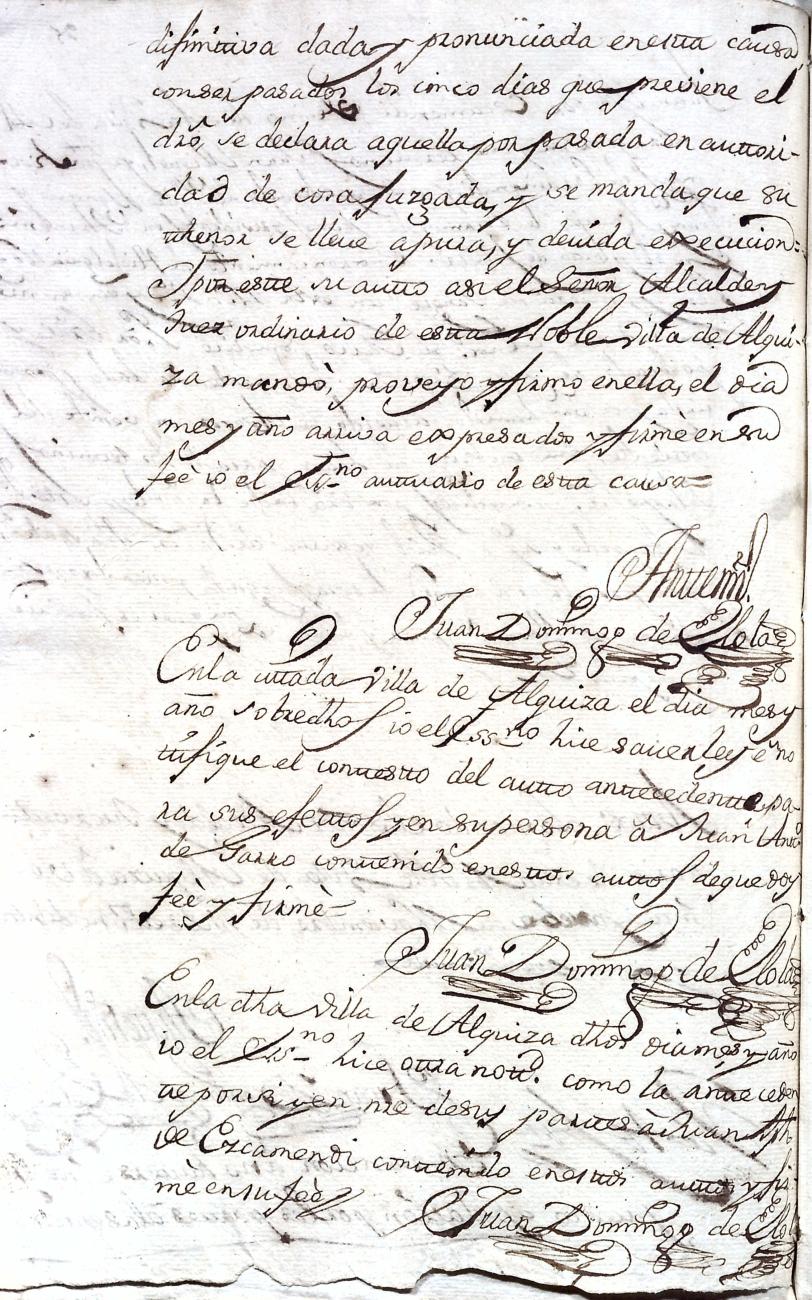 difinitiva dada y pronunciada en esta causa
con ser pasados los cinco dias que previene el
dro, se declara aquella por pasada en autori-
dad de cosa Juzgada, y se manda que su
thenor se lleve a pura, y devida execucion:
Y por este su auto asi el Señor Alcalde y
Juez ordinario de esta Noble villa de Alqui-
za mandò, proveyo y firmo en ella, el dia
mes y año arriva expresados y firmè en su
feè io el Ssno. actuario de esta causa=
Anttemi
Juan Domingo de Olota
En la cittada villa de Alquiza el dia mes y
año sobredhos io el Essno hice saver ley è no
tifique el contesto del autto antecedentte pa-
ra sus efecttos y en su persona â Juan Antto
de Garro conttenido en estos auttos de que doy
feè y firmè=
Juan Domingo de Olota
En la dha villa de Alquiza dhos dia mes y año
io el Essno hice otra nott. como la anteceden
te por si y en nre de sus partes à Juan
de Ezcamendi conttenido en estos auttos y fir-
mè en su feè
Juan Domingo de Olot